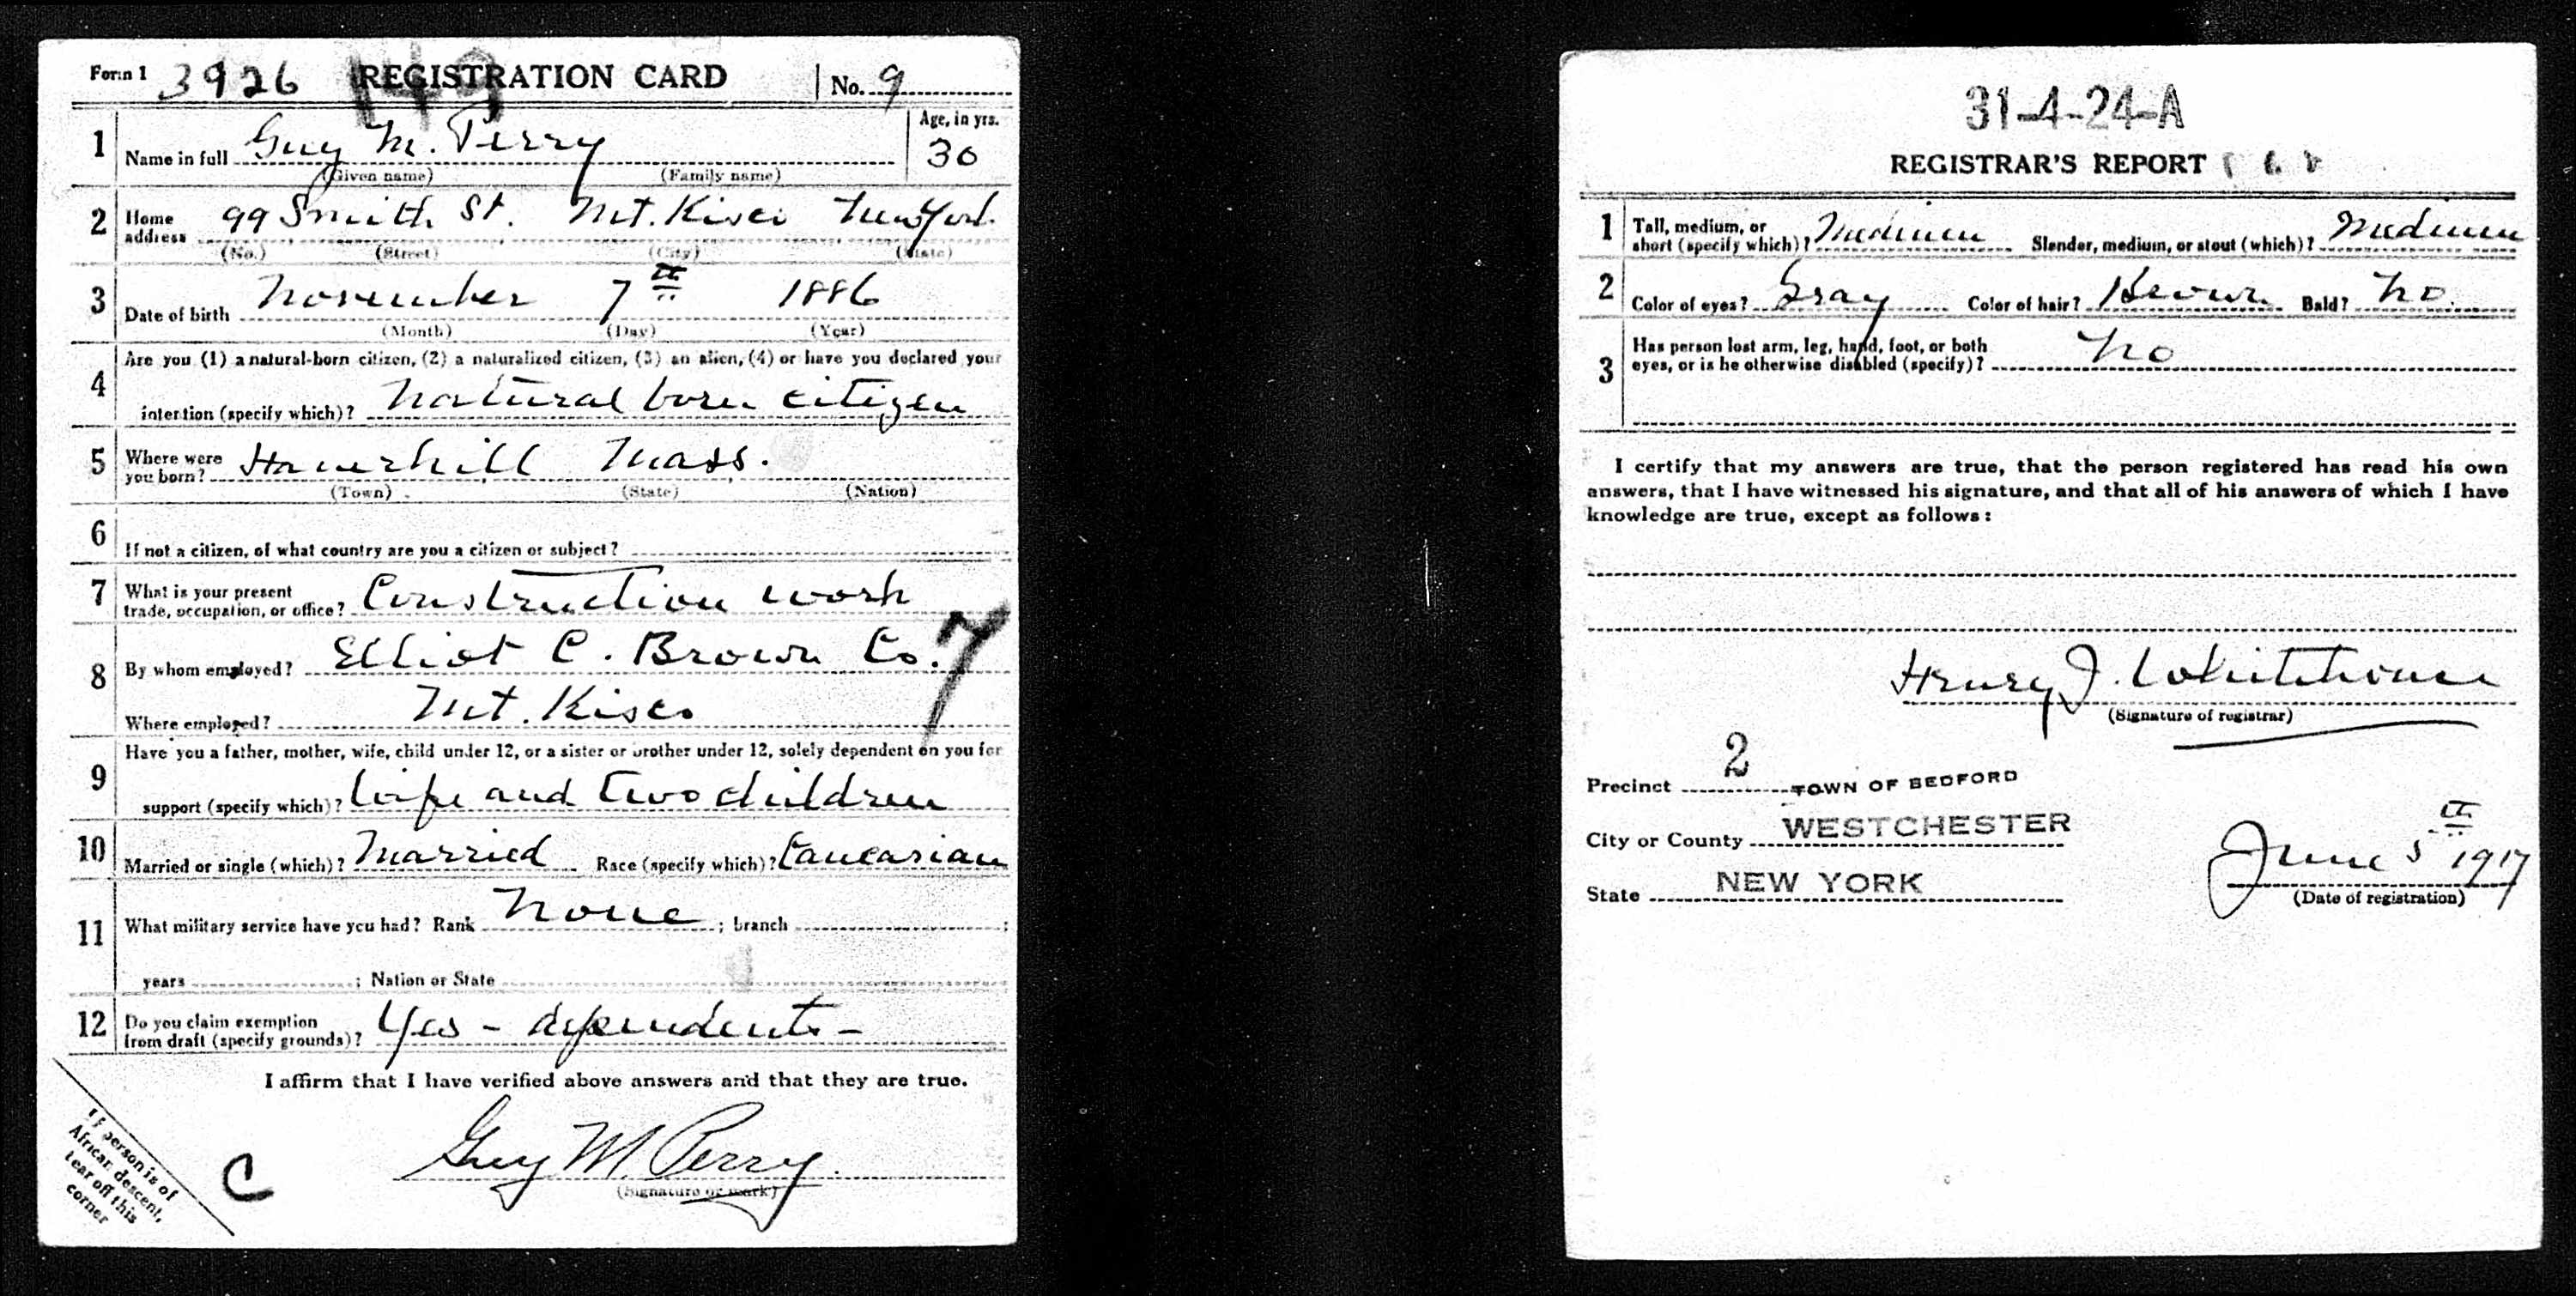 Form 1 3926 REGISTRATION CARD No. 9
149
1 Name in full Guy M. Perry Age, in yrs. 30
(Given name) (Family name)
2 Home address 99 Smith St. Mt. Kisco New York
(No.) (Street) (City) (State)
3 Date of birth November 7th 1886
(Month) (Day) (Year)
4 Are you (1) a natural-born citizen, (2) a naturalized citizen, (3) an alien, (4) or have you declared your
intention (specify which)? Natural born citizen
5 Where were you born? Haverhill Mass.
(Town) (State) (Nation)
6 If not a citizen, of what country are you a citizen or subject?
7 What is your present trade, occupation, or office? Construction work
8 By whom employed? Elliot C. Brown Co. 7
Where employed? Mt. Kisco
9 Have you a father, mother, wife, child under 12, or a sister or brother under 12, solely dependent on you for
support (specify which)? Wife and two children
10 Married or single (which)? Married Race (specify which)? Caucasian
11 What military service have you had? Rank None ; branch ;
years ; Nation or State
12 Do you claim exemption from draft (specify grounds)? Yes - dependents -
I affirm that I have verified above answers and that they are true.
Guy M. Perry
(Signature or mark)
If person is of
African descent,
tear off this
corner
C
31-4-24-A
REGISTRAR'S REPORT
1 Tall, medium, or short (specify which)? Medium Slender, medium, or stout (which)? Medium
2 Color of eyes? Gray Color of hair? Brown Bald? No
3 Has person lost arm, leg, hand, foot, or both
eyes, or is he otherwise disabled (specify)? No
I certify that my answers are true, that the person registered has read his own
answers, that I have witnessed his signature, and that all of his answers of which I have
knowledge are true, except as follows:
Henry J. Whitehouse
(Signature of registrar)
Precinct 2 TOWN OF BEDFORD
City or County WESTCHESTER
State NEW YORK
June 5th 1917
(Date of registration)